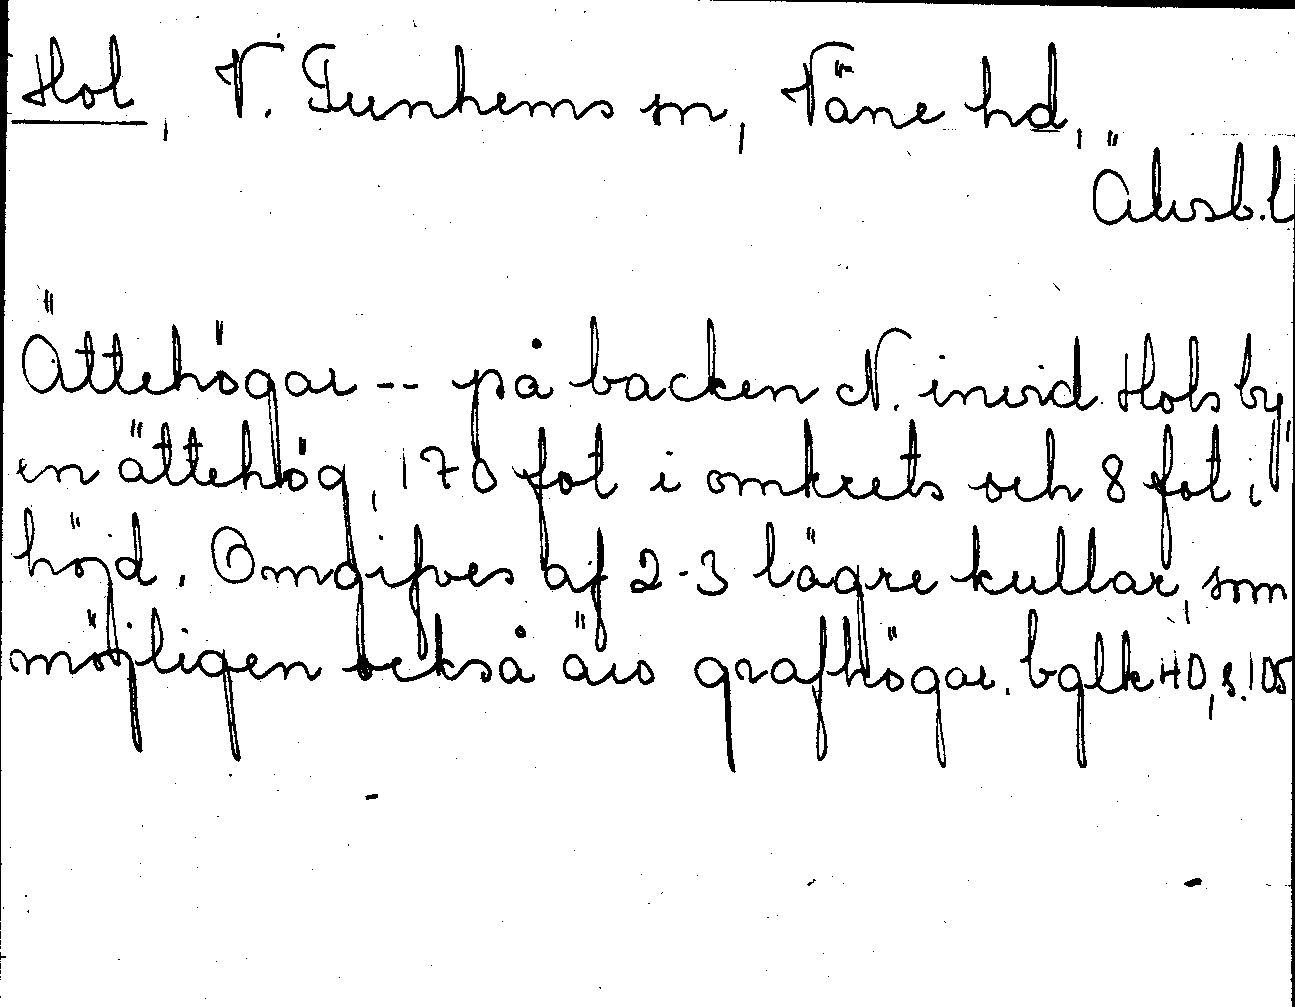 Hol, V. Tunhems sn, Väne hd,
Älvsb.l
Ättehögar -- på backen N. invid Hols by
en ättehög, 170 fot i omkrets och 8 fot i
höjd. Omgifves af 2-3 lägre kullar, som
möjligen också äro grafhögar. bglk HD, s. 105